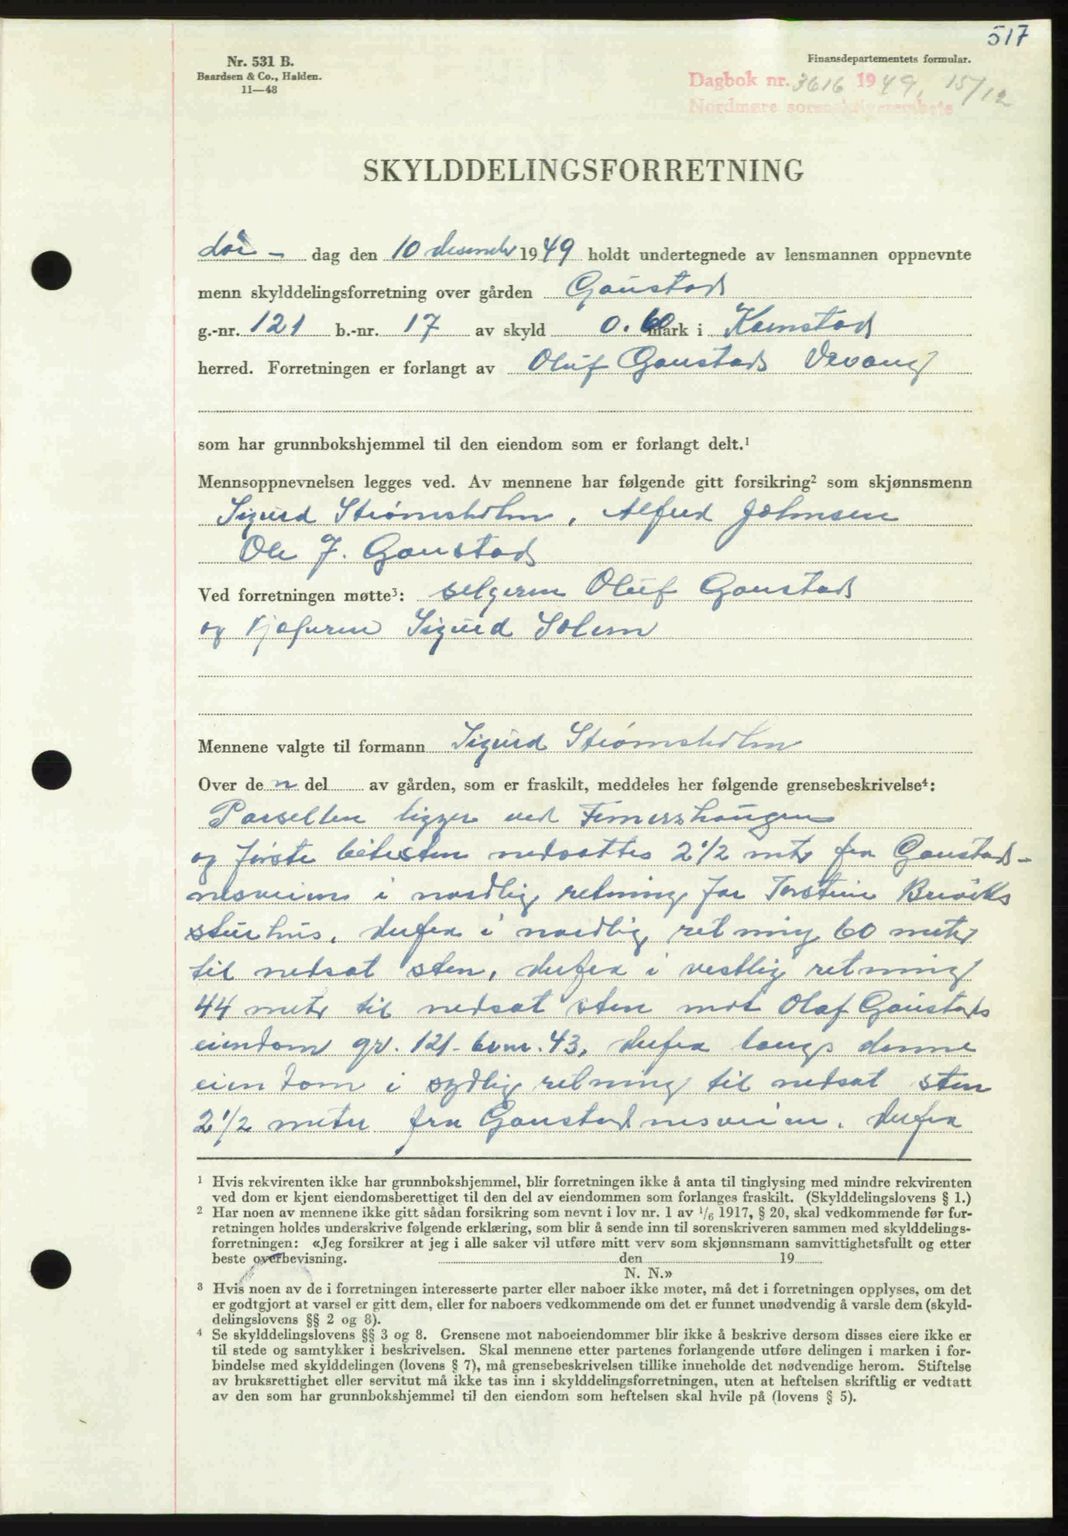 517
Nr. 531 B.
Baardsen & Co., Halden.
11—48
Finansdepartementets formular.
Dagbok nr. 3616 1949, 15/12
Nordmøre sorenskriverembete
SKYLDDELINGSFORRETNING
dag den 10 desember 1949 holdt undertegnede av lensmannen oppnevnte
menn skylddelingsforretning over gården Gaustad
g.-nr. 121 b.-nr. 17 av skyld 0.60 mark i Kornstad
herred. Forretningen er forlangt av Oluf Gaustad Vevang
som har grunnbokshjemmel til den eiendom som er forlangt delt.¹
Mennsoppnevnelsen legges ved. Av mennene har følgende gitt forsikring² som skjønnsmenn
Sigurd Strømsholm, Alfred Johnsen
Ole J. Gaustad
Ved forretningen møtte³: selgeren Oluf Gaustad
og kjøperen Sigurd Solem
Mennene valgte til formann Sigurd Strømsholm
Over den del av gården, som er fraskilt, meddeles her følgende grensebeskrivelse⁴:
Parsellen ligger ved
og første nedsattes 2 1/2 mtr fra Gaustad-
nesveien i nordlig retning for Torstein Breviks
stuehus, derfra i nordlig retning 60 meter
til nedsat sten, derfra i vestlig retning
44 meter til nedsat sten mot Olaf Gaustads
eiendom gr. 121 - brnr. 43, derfra langs denne
eiendom i sydlig retning til nedsat sten
2 1/2 meter fra Gaustadnesveien. derfra
¹ Hvis rekvirenten ikke har grunnbokshjemmel, blir forretningen ikke å anta til tinglysing med mindre rekvirenten
ved dom er kjent eiendomsberettiget til den del av eiendommen som forlanges fraskilt. (Skylddelingslovens § 1.)
² Har noen av mennene ikke gitt sådan forsikring som nevnt i lov nr. 1 av 1/6 1917, § 20, skal vedkommende før for-
retningen holdes underskrive følgende erklæring, som blir å sende inn til sorenskriveren sammen med skylddelings-
forretningen: «Jeg forsikrer at jeg i alle saker vil utføre mitt verv som skjønnsmann samvittighetsfullt og etter
beste overbevisning. den 19
N. N.»
³ Hvis noen av de i forretningen interesserte parter eller naboer ikke møter, må det i forretningen opplyses, om det
er godtgjort at varsel er gitt dem, eller for naboers vedkommende om det er funnet unødvendig å varsle dem (skyld-
delingslovens §§ 2 og 8).
⁴ Se skylddelingslovens §§ 3 og 8. Grensene mot naboeiendommer blir ikke å beskrive dersom disses eiere ikke er
til stede og samtykker i beskrivelsen. Skal mennene etter partenes forlangende utføre delingen i marken i for-
bindelse med skylddelingen (lovens § 7), må grensebeskrivelsen tillike inneholde det nødvendige herom. Stiftelse
av bruksrettighet eller servitut må ikke tas inn i skylddelingsforretningen, uten at heftelsen skriftlig er vedtatt
av den som har grunnbokshjemmel til den eiendom som heftelsen skal hvile på (lovens § 5).